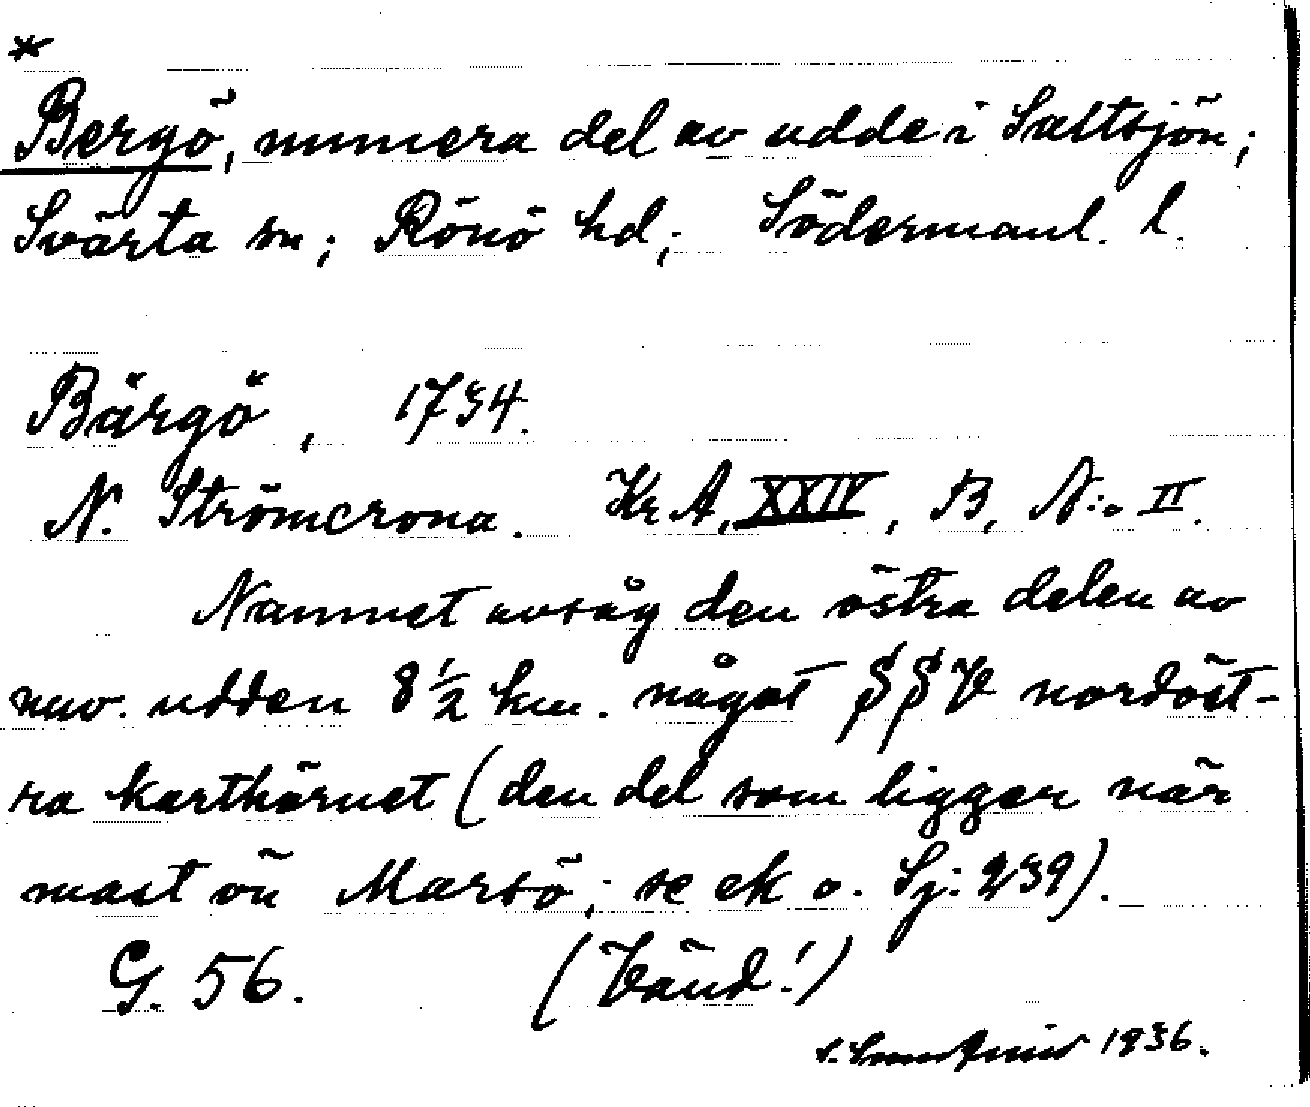 *
Bergö, numera del av udde i Saltsjön;
Svärta sn; Rönö hd; Södermanl. l.
Bärgö, 1734.
N. Strömcrona. Kr A, XXIV, B, N:o II.
Namnet avsåg den östra delen av
nuv. udden 8 1/2 km. något SSV nordöst-
ra karthörnet (den del som ligger när
mast ön Marsö; se ek o. Sj: 239).
G. 56. (Vänd!)
1936.